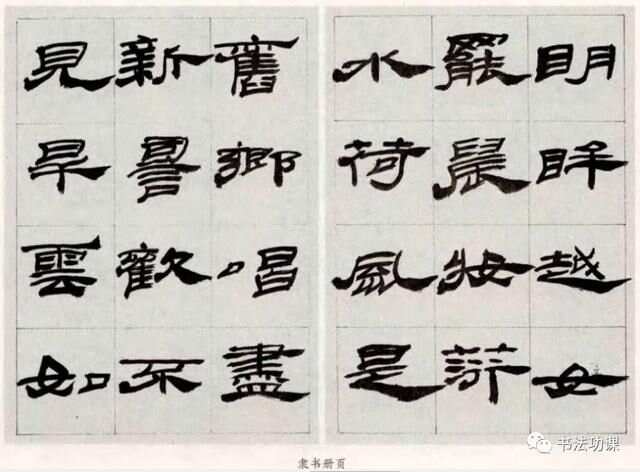 明眸越女
罷晨妝荇
水荷風是
舊鄉唱盡
新詞歡不
見旱雲如
隶书册页
书法功课